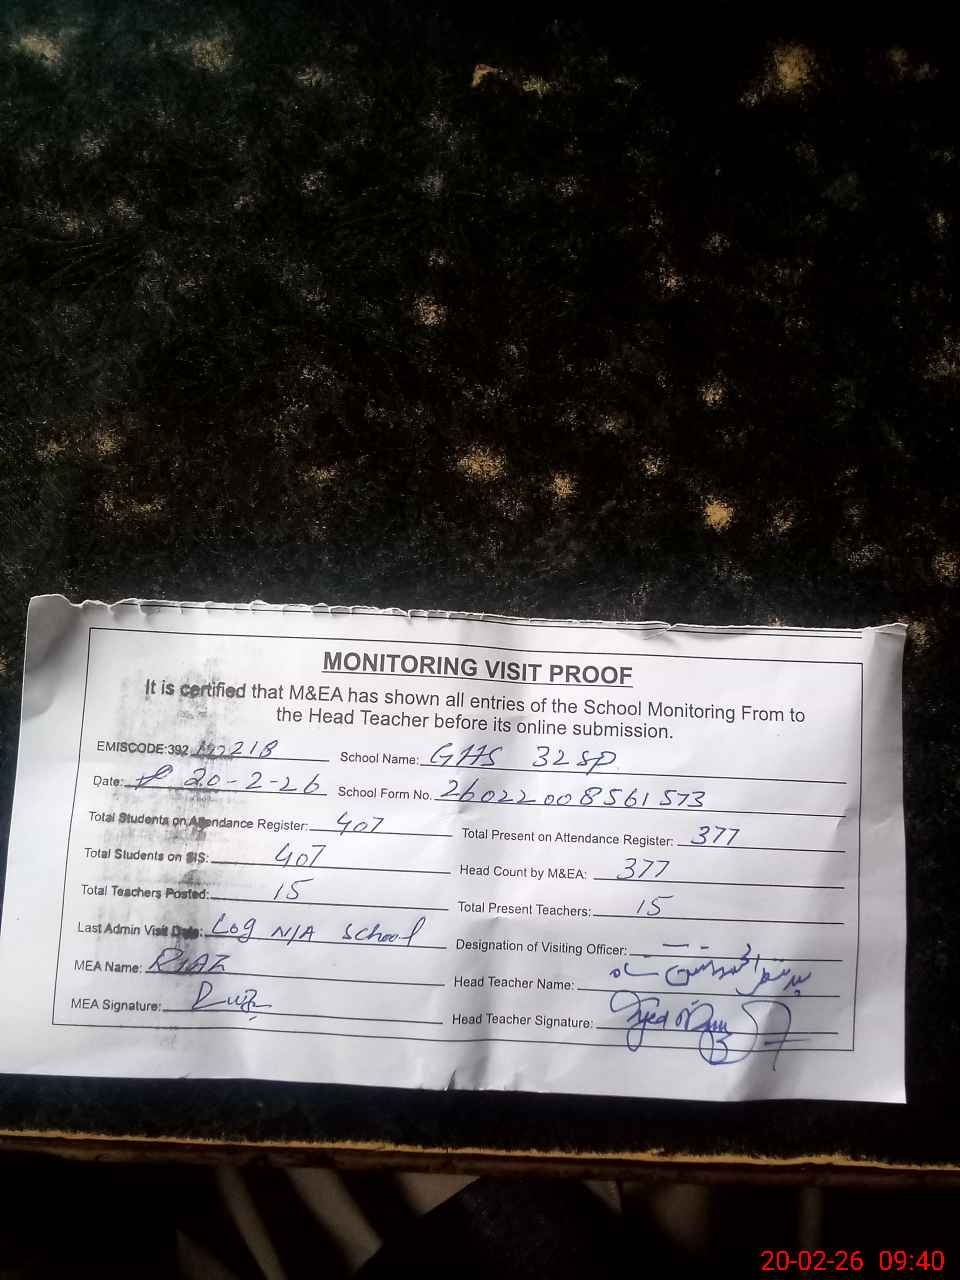 MONITORING VISIT PROOF
It is certified that M&EA has shown all entries of the School Monitoring From to
the Head Teacher before its online submission.
EMISCODE:392 School Name: GHS 32 SP
Date: 20-2-26 School Form No. 260220008561573
Total Students on Attendance Register: 407 Total Present on Attendance Register: 377
Total Students on SIS: 407 Head Count by M&EA: 377
Total Teachers Posted: 15 Total Present Teachers: 15
Last Admin Visit Date: Log N/A School Designation of Visiting Officer:
MEA Name: RIAZ Head Teacher Name:
MEA Signature: Head Teacher Signature: Syed
20-02-26 09:40